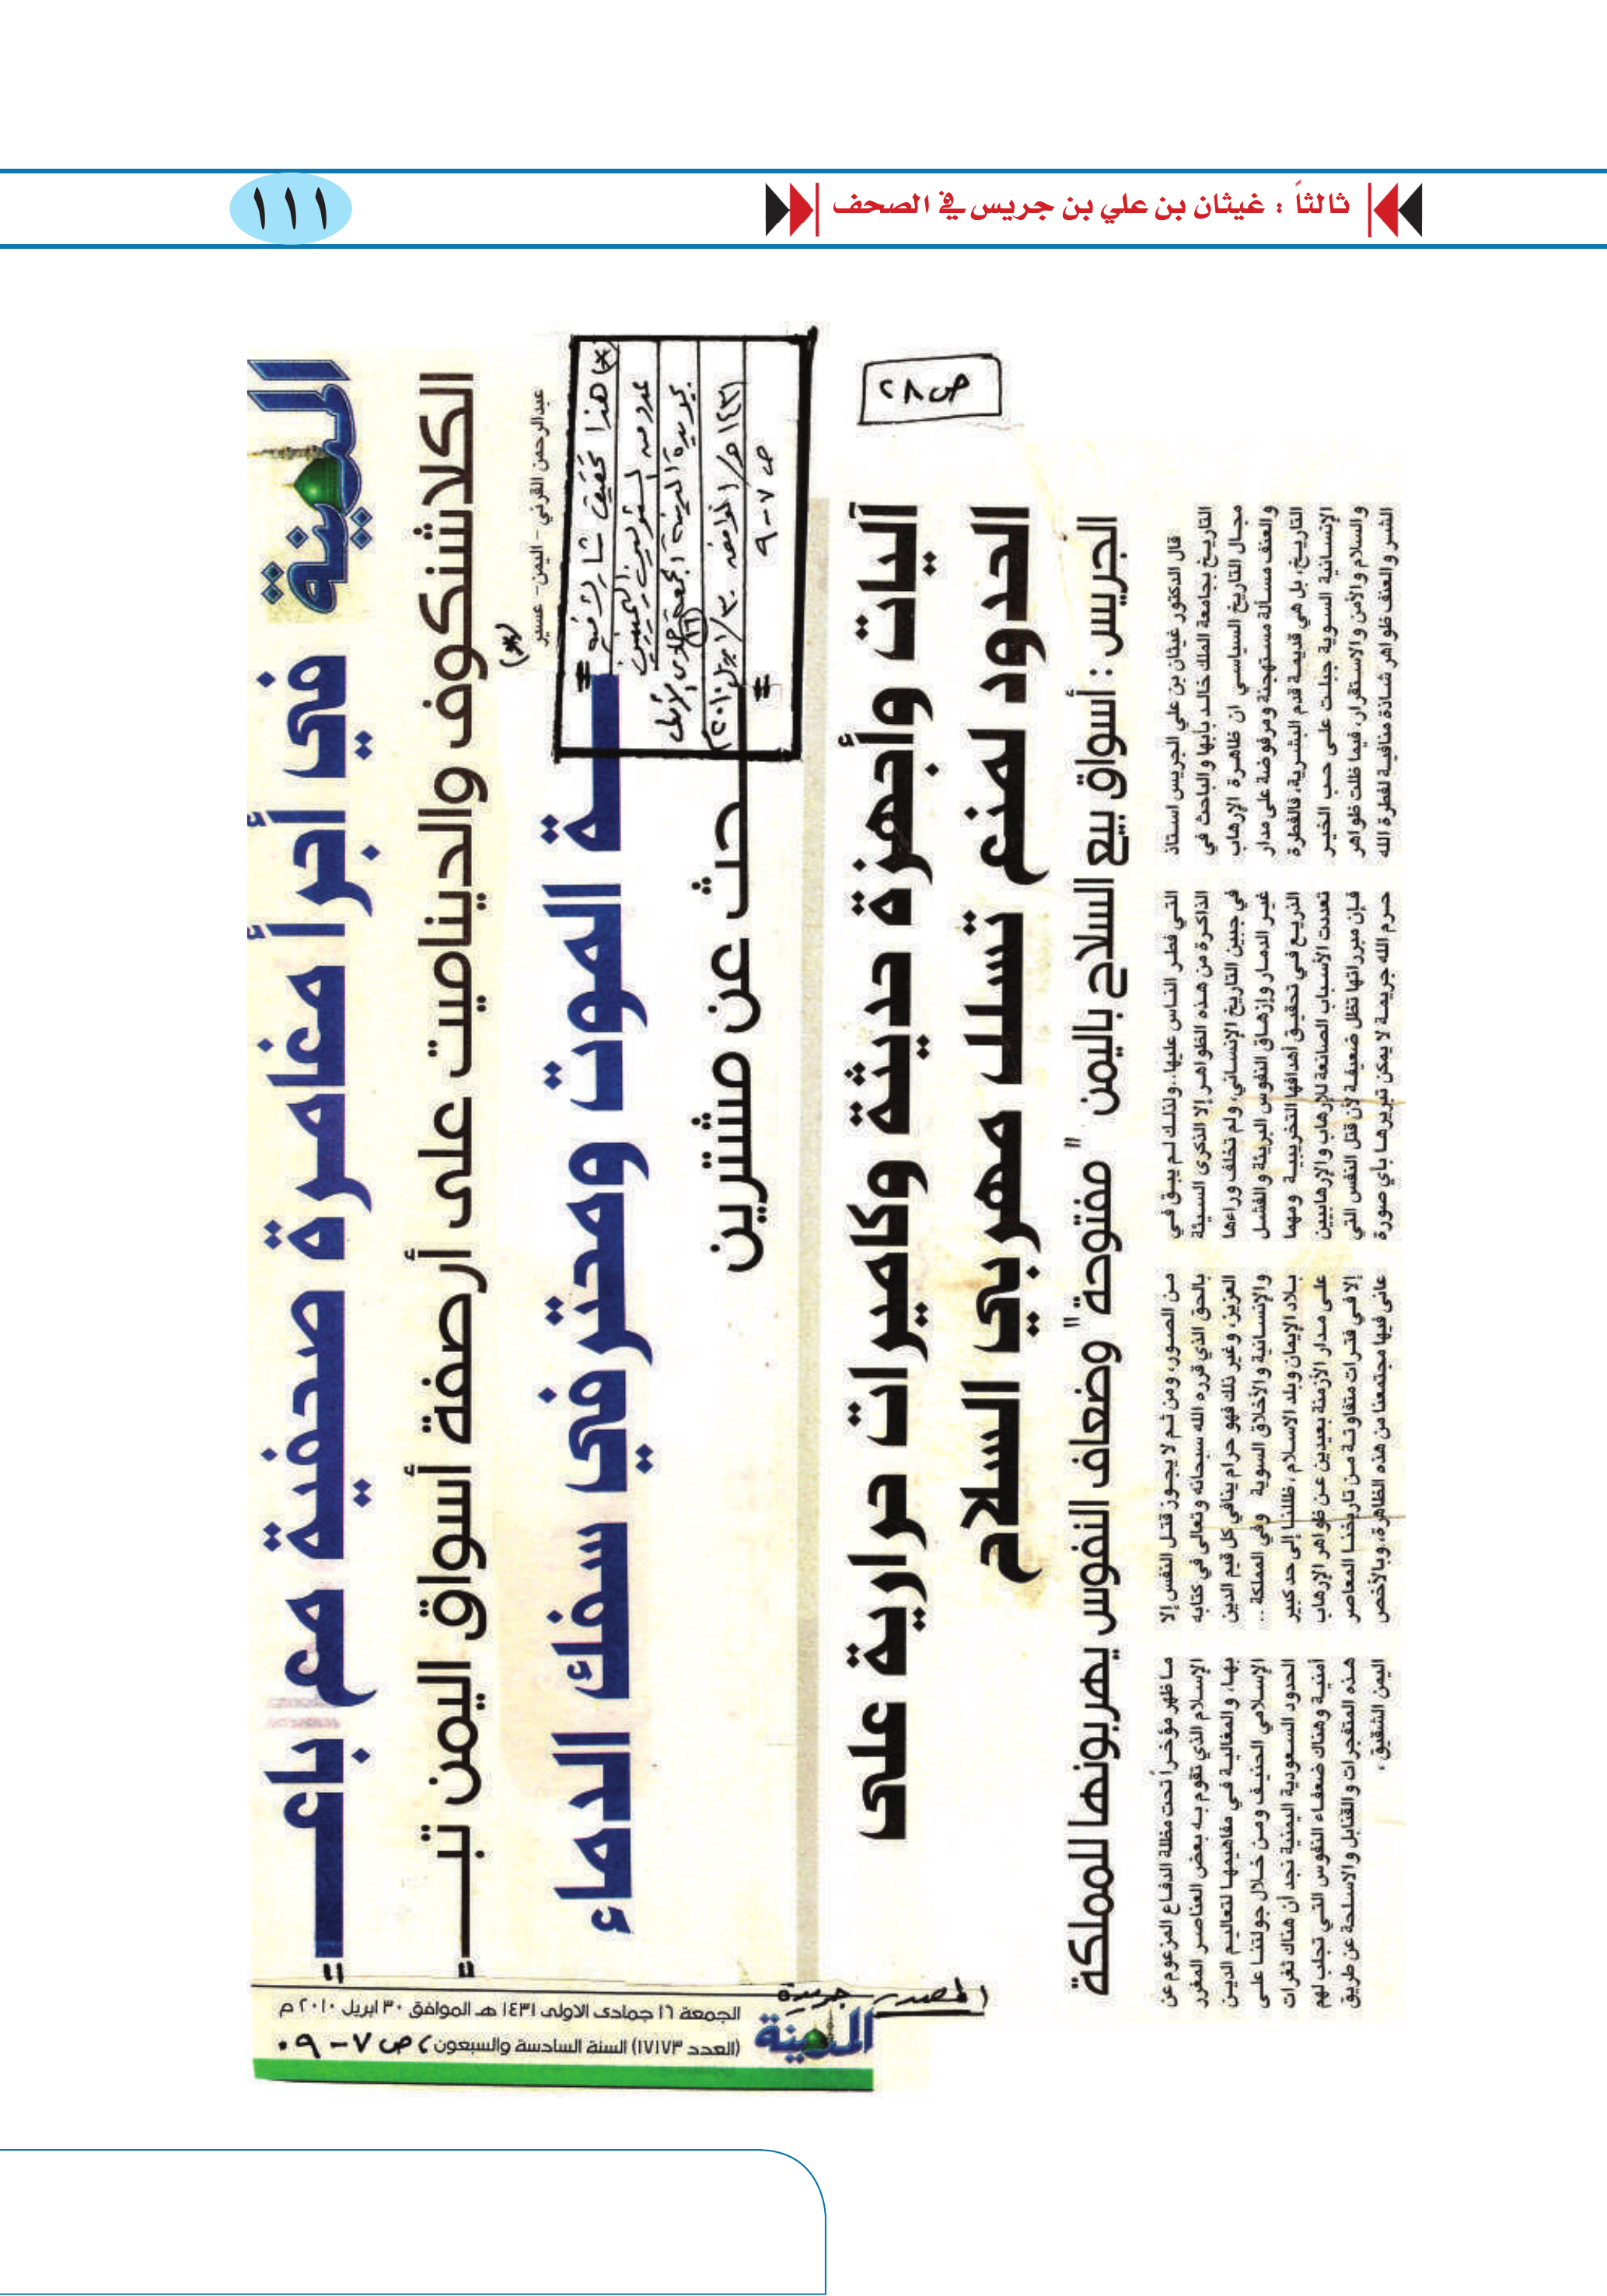 ثالثاً : غيثان بن علي بن جريس في الصحف
١١١
المدينة في أجرأ مغامرة صحفية مع بائعـ
الكلاشنكوف والديناميت على أرصفة أسواق اليمن تبـ
(*)
عبدالرحمن القرني - اليمن - عسير
ـة الموت وصعدة
حث عن مشترين
(*) هذا تحقيق شارك فيه
عدد من المسئولين
جريدة المدينة الجمعة (١٦) جمادى الأولى
١٤٣١هـ / الموافق ٣٠/ ابريل ٢٠١٠م
ص ٧-٩
ص ٢٨
آليات وأجهزة حديثة وكاميرات حرارية على
الحدود لمنع متسللي ومهربي السلاح
الجريس : أسواق بيع السلاح باليمن "مفتوحة" وضعاف النفوس يهربونها للمملكة
قال الدكتور غيثان بن علي الجريس استاذ
التاريخ بجامعة الملك خالد بأبها والباحث في
مجال التاريخ السياسي ان ظاهرة الإرهاب
والعنف مسألة مستهجنة ومرفوضة على مدار
التاريخ، بل هي قديمة قدم البشرية، فالفطرة
الإنسانية السوية جبلت على حب الخير
والسلام والأمن والاستقرار، فيما ظلت ظواهر
الشر والعنف ظواهر شاذة منافية لفطرة الله
التي فطر الناس عليها.. ولذلك لم يبق في
الذاكرة من هذه الظواهر إلا الذكرى السيئة
في جبين التاريخ الإنساني، ولم تخلف وراءها
غير الدمار وإزهاق النفوس البريئة والفشل
الذريع في تحقيق أهدافها التخريبية ومهما
تعددت الأسباب الصانعة للإرهاب والإرهابيين
فإن مبرراتها تظل ضعيفة لأن قتل النفس التي
حرم الله جريمة لا يمكن تبريرها بأي صورة
من الصور، ومن ثم لا يجوز قتل النفس إلا
بالحق الذي قرره الله سبحانه وتعالى في كتابه
العزيز، وغير ذلك فهو حرام ينافي كل قيم الدين
والإنسانية والأخلاق السوية وفي المملكة ..
بلاد الإيمان وبلد الاسلام، ظللنا إلى حد كبير
على مدار الأزمنة بعيدين عن ظواهر الإرهاب
إلا في فترات متفاوتة من تاريخنا المعاصر
عانى فيها مجتمعنا من هذه الظاهرة، وبالأخص
ما ظهر مؤخراً تحت مظلة الدفاع المزعوم عن
الإسلام الذي تقوم به بعض العناصر المغرر
بها، والمغالية في مفاهيمها لتعاليم الدين
الإسلامي الحنيف ومن خلال جولتنا على
الحدود السعودية اليمنية نجد أن هناك ثغرات
أمنية وهناك ضعفاء النفوس التي تجلب لهم
هذه المتفجرات والقنابل والاسلحة عن طريق
اليمن الشقيق .
المصدر جريدة
المدينة
الجمعة ١٦ جمادى الاولى ١٤٣١ هـ الموافق ٣٠ ابريل ٢٠١٠ م
(العدد ١٧١٧٣) السنة السادسة والسبعون، ص ٧ - ٩